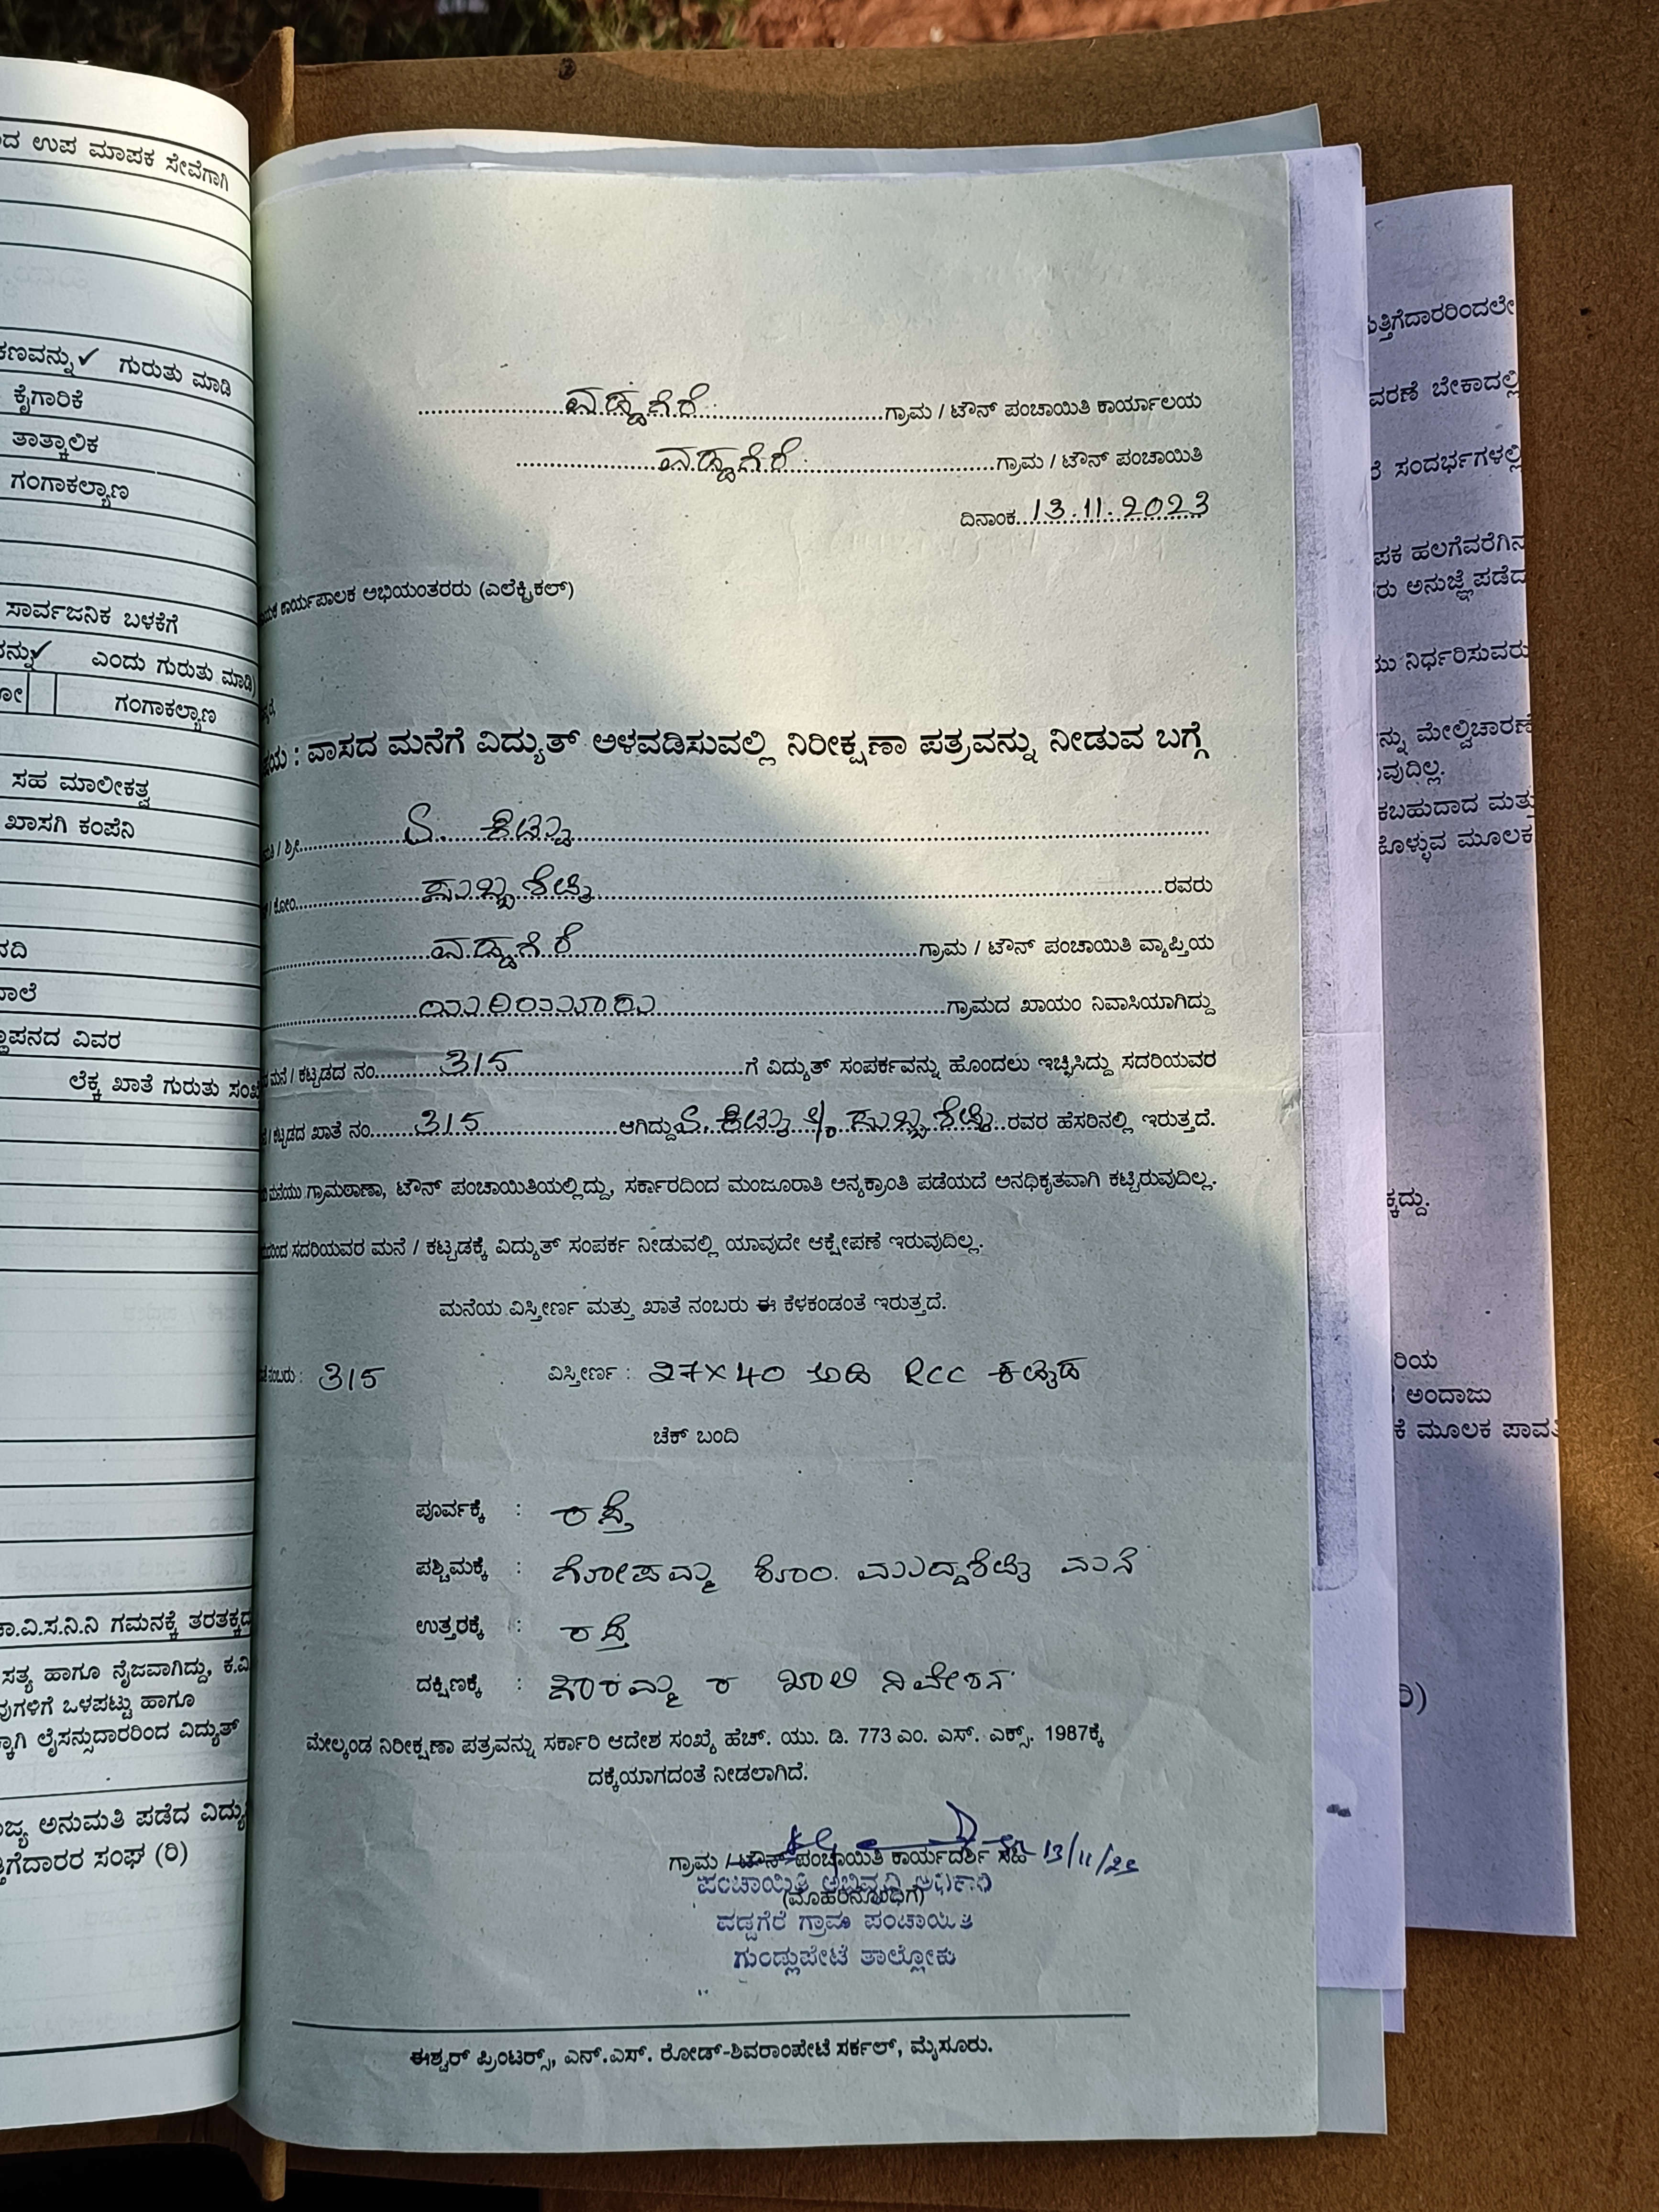 ಉಪ ಮಾಪಕ ಸೇವೆಗಾಗಿ
ಗುರುತು ಮಾಡಿ
ಕೈಗಾರಿಕೆ
ತಾತ್ಕಾಲಿಕ
ಗಂಗಾಕಲ್ಯಾಣ
ಸಾರ್ವಜನಿಕ ಬಳಕೆಗೆ
ಎಂದು ಗುರುತು ಮಾಡಿ)
ಗಂಗಾಕಲ್ಯಾಣ
ಸಹ ಮಾಲೀಕತ್ವ
ಖಾಸಗಿ ಕಂಪೆನಿ
ವಿವರ
ಲೆಕ್ಕ ಖಾತೆ ಗುರುತು
ಗಮನಕ್ಕೆ
ಸತ್ಯ ಹಾಗೂ ನೈಜವಾಗಿದ್ದು,
ಒಳಪಟ್ಟು ಹಾಗೂ
ಲೈಸನ್ಸುದಾರರಿಂದ ವಿದ್ಯುತ್
ಅನುಮತಿ ಪಡೆದ
ಸಂಘ (ರಿ)
ವಡ್ಡಗೆರೆ ಗ್ರಾಮ / ಟೌನ್ ಪಂಚಾಯಿತಿ ಕಾರ್ಯಾಲಯ
ವಡ್ಡಗೆರೆ ಗ್ರಾಮ / ಟೌನ್ ಪಂಚಾಯಿತಿ
ದಿನಾಂಕ 13.11.2023
ಕಾರ್ಯಪಾಲಕ ಅಭಿಯಂತರರು (ಎಲೆಕ್ಟ್ರಿಕಲ್)
: ವಾಸದ ಮನೆಗೆ ವಿದ್ಯುತ್ ಅಳವಡಿಸುವಲ್ಲಿ ನಿರೀಕ್ಷಣಾ ಪತ್ರವನ್ನು ನೀಡುವ ಬಗ್ಗೆ
/ ಶ್ರೀ
/ ಕೋಂ ಸುಬ್ಬಶೆಟ್ಟಿ ರವರು
ವಡ್ಡಗೆರೆ ಗ್ರಾಮ / ಟೌನ್ ಪಂಚಾಯಿತಿ ವ್ಯಾಪ್ತಿಯ
ಗ್ರಾಮದ ಖಾಯಂ ನಿವಾಸಿಯಾಗಿದ್ದು
ಮನೆ / ಕಟ್ಟಡದ ನಂ 315 ಗೆ ವಿದ್ಯುತ್ ಸಂಪರ್ಕವನ್ನು ಹೊಂದಲು ಇಚ್ಛಿಸಿದ್ದು ಸದರಿಯವರ
/ ಕಟ್ಟಡದ ಖಾತೆ ನಂ 315 ಆಗಿದ್ದು ಸುಬ್ಬಶೆಟ್ಟಿ ರವರ ಹೆಸರಿನಲ್ಲಿ ಇರುತ್ತದೆ.
ಮನೆಯು ಗ್ರಾಮಠಾಣಾ, ಟೌನ್ ಪಂಚಾಯಿತಿಯಲ್ಲಿದ್ದು, ಸರ್ಕಾರದಿಂದ ಮಂಜೂರಾತಿ ಅನ್ಯಕ್ರಾಂತಿ ಪಡೆಯದೆ ಅನಧಿಕೃತವಾಗಿ ಕಟ್ಟಿರುವುದಿಲ್ಲ.
ಸದರಿಯವರ ಮನೆ / ಕಟ್ಟಡಕ್ಕೆ ವಿದ್ಯುತ್ ಸಂಪರ್ಕ ನೀಡುವಲ್ಲಿ ಯಾವುದೇ ಆಕ್ಷೇಪಣೆ ಇರುವುದಿಲ್ಲ.
ಮನೆಯ ವಿಸ್ತೀರ್ಣ ಮತ್ತು ಖಾತೆ ನಂಬರು ಈ ಕೆಳಕಂಡಂತೆ ಇರುತ್ತದೆ.
ನಂಬರು : 315 ವಿಸ್ತೀರ್ಣ : 27X40 ಅಡಿ RCC ಕಟ್ಟಡ
ಚೆಕ್ ಬಂದಿ
ಪೂರ್ವಕ್ಕೆ : ರಸ್ತೆ
ಪಶ್ಚಿಮಕ್ಕೆ : ಗೋಪಮ್ಮ ಕೋಂ. ಮುದ್ದಶೆಟ್ಟಿ ಮನೆ
ಉತ್ತರಕ್ಕೆ : ರಸ್ತೆ
ದಕ್ಷಿಣಕ್ಕೆ : ಖಾಲಿ ನಿವೇಶನ
ಮೇಲ್ಕಂಡ ನಿರೀಕ್ಷಣಾ ಪತ್ರವನ್ನು ಸರ್ಕಾರಿ ಆದೇಶ ಸಂಖ್ಯೆ ಹೆಚ್. ಯು. ಡಿ. 773 ಎಂ. ಎಸ್. ಎಕ್ಸ್. 1987ಕ್ಕೆ
ದಕ್ಕೆಯಾಗದಂತೆ ನೀಡಲಾಗಿದೆ.
ಗ್ರಾಮ / ಟೌನ್ ಪಂಚಾಯಿತಿ ಕಾರ್ಯದರ್ಶಿ ಸಹಿ 13/11/23
(ಮೊಹರಿನೊಂದಿಗೆ)
ಪಂಚಾಯಿತಿ ಅಭಿವೃದ್ಧಿ ಅಧಿಕಾರಿ
ವಡ್ಡಗೆರೆ ಗ್ರಾಮ ಪಂಚಾಯಿತಿ
ಗುಂಡ್ಲುಪೇಟೆ ತಾಲ್ಲೋಕು
ಈಶ್ವರ್ ಪ್ರಿಂಟರ್ಸ್, ಎನ್.ಎಸ್. ರೋಡ್-ಶಿವರಾಂಪೇಟೆ ಸರ್ಕಲ್, ಮೈಸೂರು.
ಬೇಕಾದಲ್ಲಿ
ಸಂದರ್ಭಗಳಲ್ಲಿ
ಹಲಗೆವರೆಗಿನ
ಅನುಜ್ಞೆ ಪಡೆದ
ನಿರ್ಧರಿಸುವರು
ಮೇಲ್ವಿಚಾರಣೆ
ಮತ್ತು
ಮೂಲಕ
ಅಂದಾಜು
ಮೂಲಕ